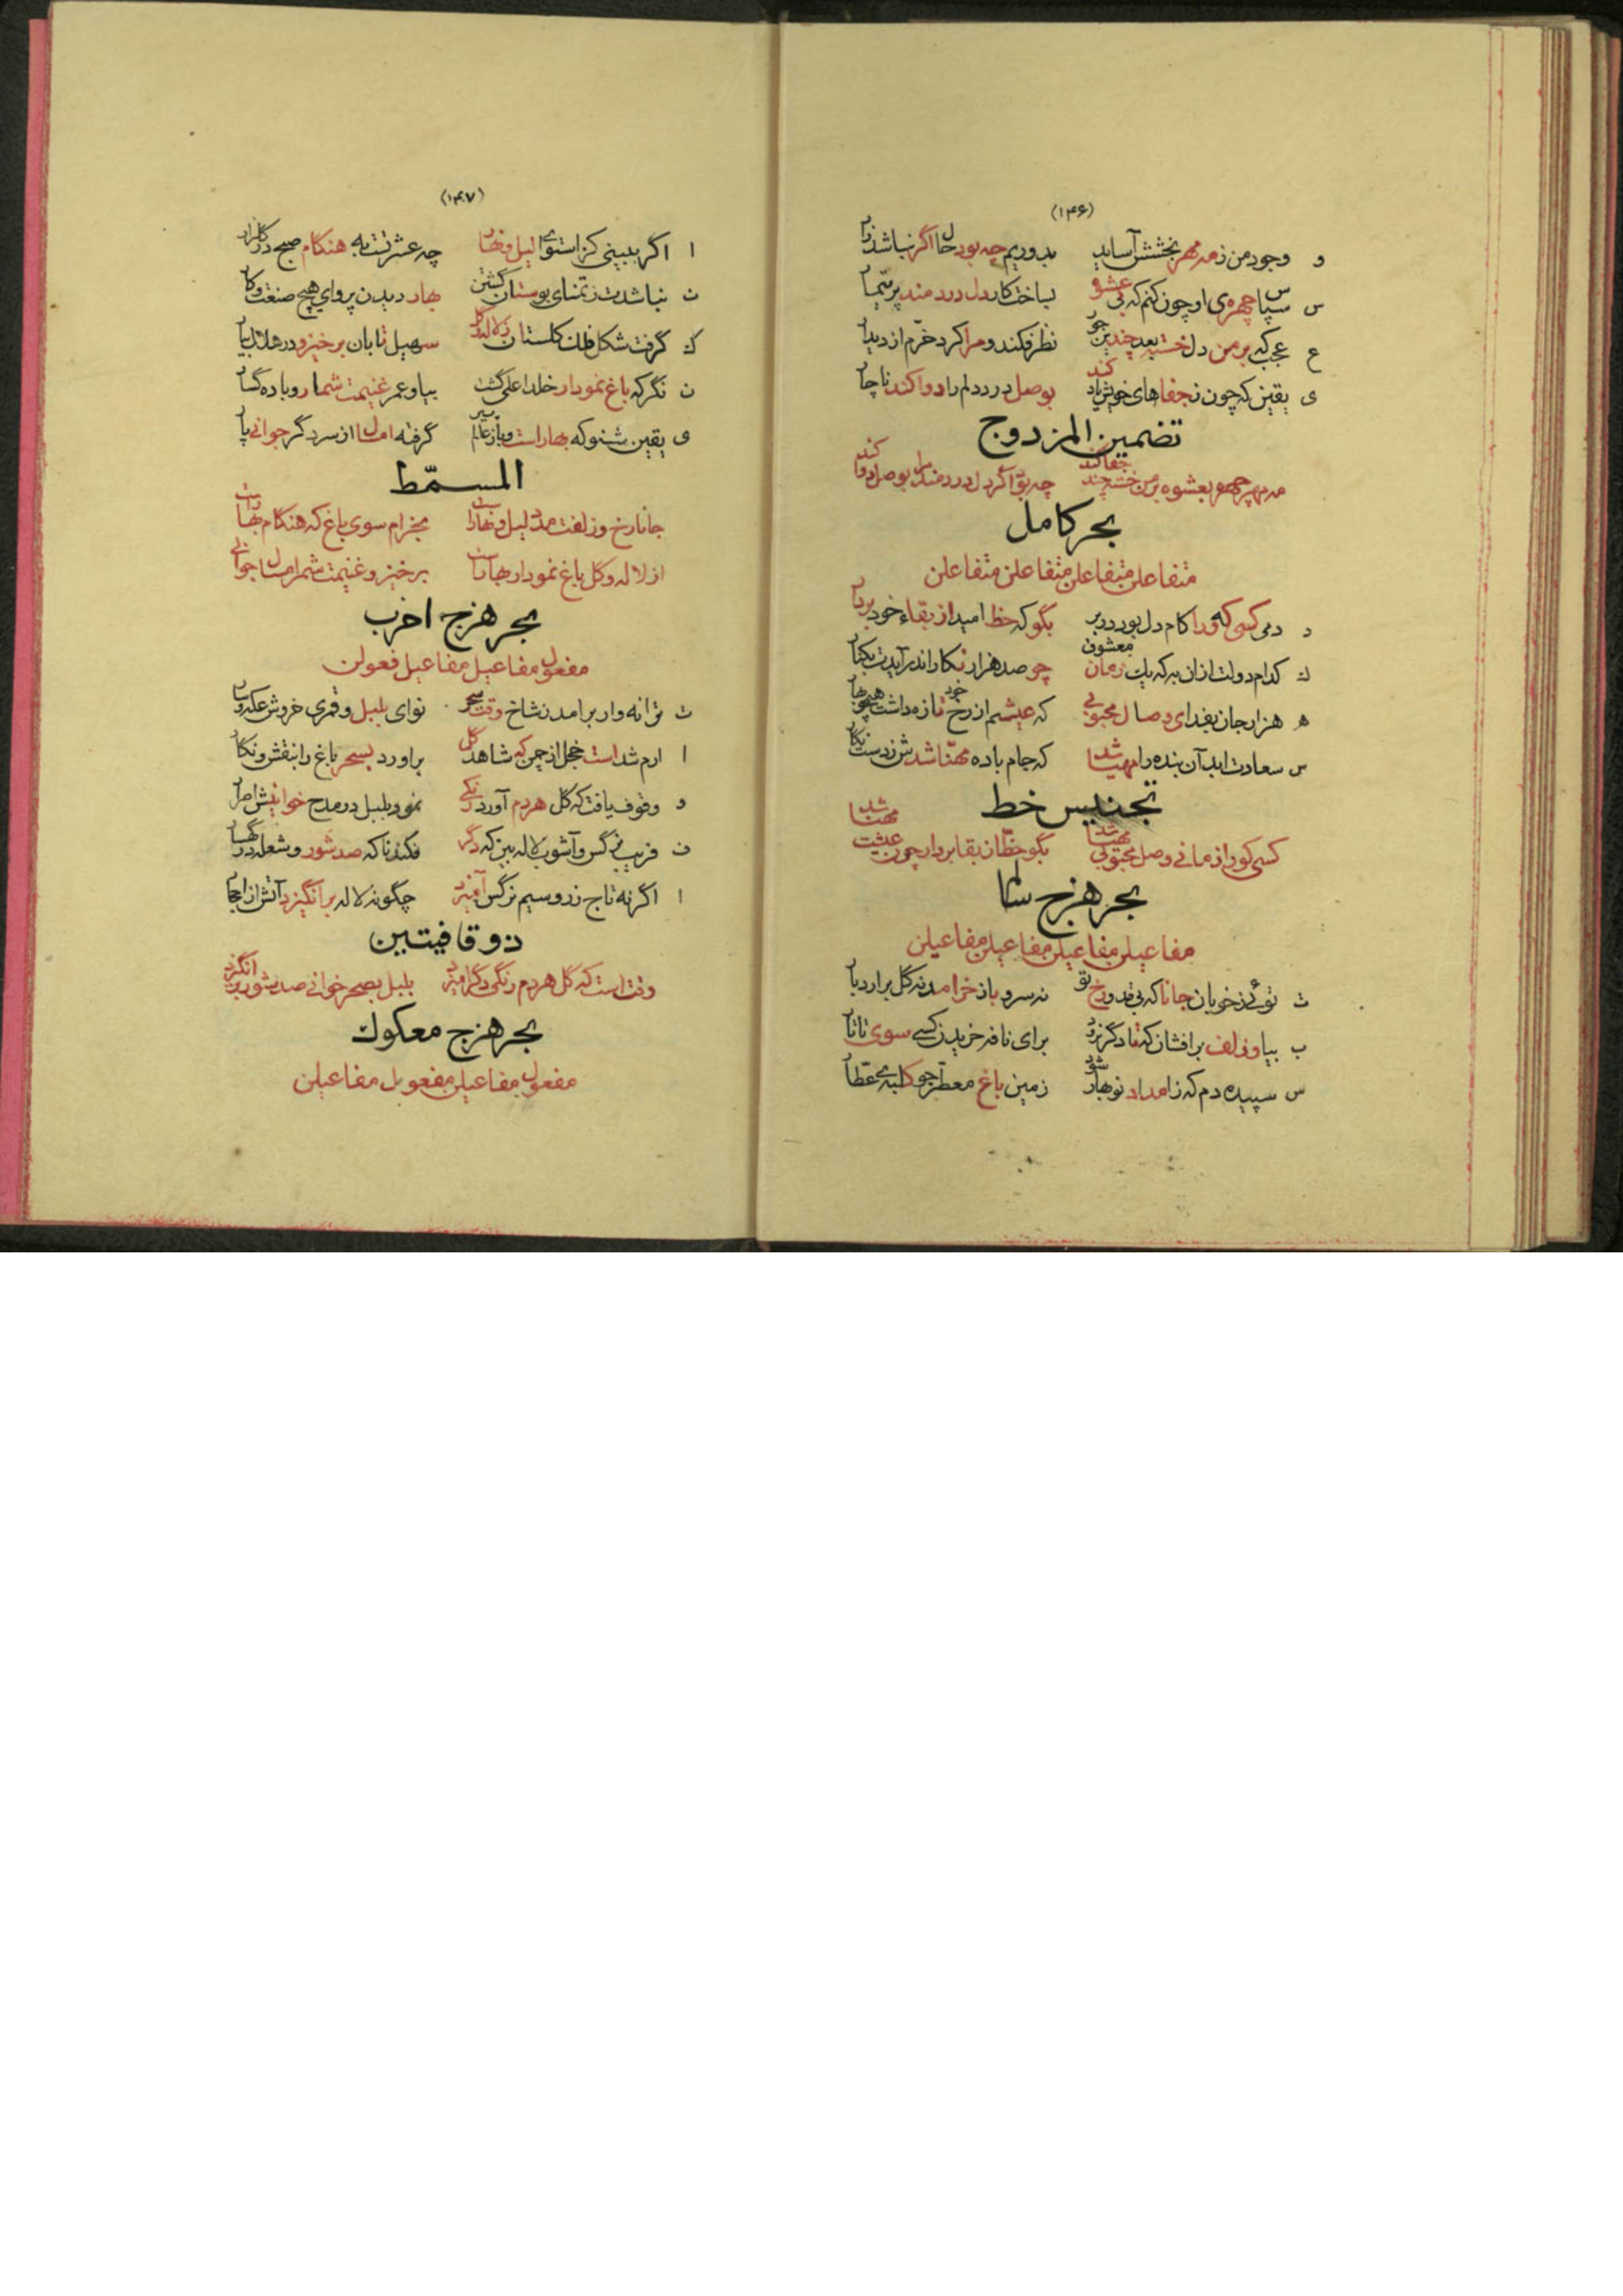 (۱۴۶)
و وجود من ز مه مهر بخشش آساید بدوریم چه بود حال اگر نباشد زار
س سپاس چهره‌ی او چون کنم که بی عشوه بساخت کار دل دردمند پر تیمار
ع عجب که بر من دل خسته بعد چندین جور نظر فکند و مرا کرد خرّم از دیدار
ی یقین که چون ز جفاهای خویش یاد کند بوصل درد دلم را دوا کند ناچار
تضمین المزدوج
مه مهر چهر بعشوه بر من خسته چند جفا کند چه بود اگر دل دردمند بوصل دوا کند
بحر کامل
متفاعلن متفاعلن متفاعلن متفاعلن
د دمی کسی که ورا کام دل بود در بر بگو که حظ امید از بقاء خود بردار
ك کدام دولت ازان به که یك زمان معشوق چو صد هزار نکار اندر آیدت بکنار
ه هزار جان بفدای وصال محبوبی که عیشم از رخ خود تازه داشت
س سعادت ابد آن بنده را مهیا شد که جام باده مهنّا شدش ز دست نکار
تجنیس خط
کسی کو را زمانی وصل محبوبی مهیا شد بگو حظ از بقا بردار چون عیشت مهنا شد
بحر هزج سالم
مفاعیلن مفاعیلن مفاعیلن مفاعیلن
ت توئی ز خوبان جانا که بی قد و رخ تو نه سرو باز خرامد نه گل برارد بار
ب بیا و زلف برافشان که تا دگر نرود برای نافه خریدن کسی سوی تاتار
س سپیده دم که ز امداد نوبهار شود زمین باغ معطر چو کلبه‌ی عطّار
(۱۴۷)
ا اگر ببینی کز استوای لیل و نهار چه عشرتت به هنگام صبح در گلزار
ن نباشدت ز تمنای بوستان گشتن بهار دیدن پروای هیچ صنعت و کار
ك گرفت شکل فلك کلستان ز لاله و گل سهیل تابان برخیز و در
ن نگر که باغ نمودار خلد اعلی گشت بیا و عمر غنیمت شمار و باده گسار
ی یقین شنو که بهار است و باز عالم پیر گرفته امسال از سر دگر جوانی پار
المسمّط
جانا رخ و زلفت مدد لیل و نهار است بخرام سوی باغ که هنکام بهار است
از لاله و گل باغ نمودار بهار است برخیز و غنیمت شمر امسال جوانی
بحر هزج اخرب
مفعول مفاعیل مفاعیل فعولن
ت ترانه وار برامد ز شاخ وقت سحر نوای بلبل و قمری خروش
ا ارم شد است خجل از چمن که شاهد گل براورد بسحر باغ را بنقش و نکار
و وقوف یافت که گل هر دم آورد رنگی نمود بلبل در مدح خوانیش اصرار
ف فریب نرگس و آشوب لاله بین که دگر فکند ناکه صد شور و شعله در کهسار
ا اگر نه تاج زر و سیم نرگس آمیزد چگونه لاله برانگیزد آتش از احجار
ذو قافیتین
وقت است که گل هر دم رنگی دگر آمیزد بلبل بسحر خوانی صد شور برانگیزد
بحر هزج معکوك
مفعول مفاعیلن مفعول مفاعیلن